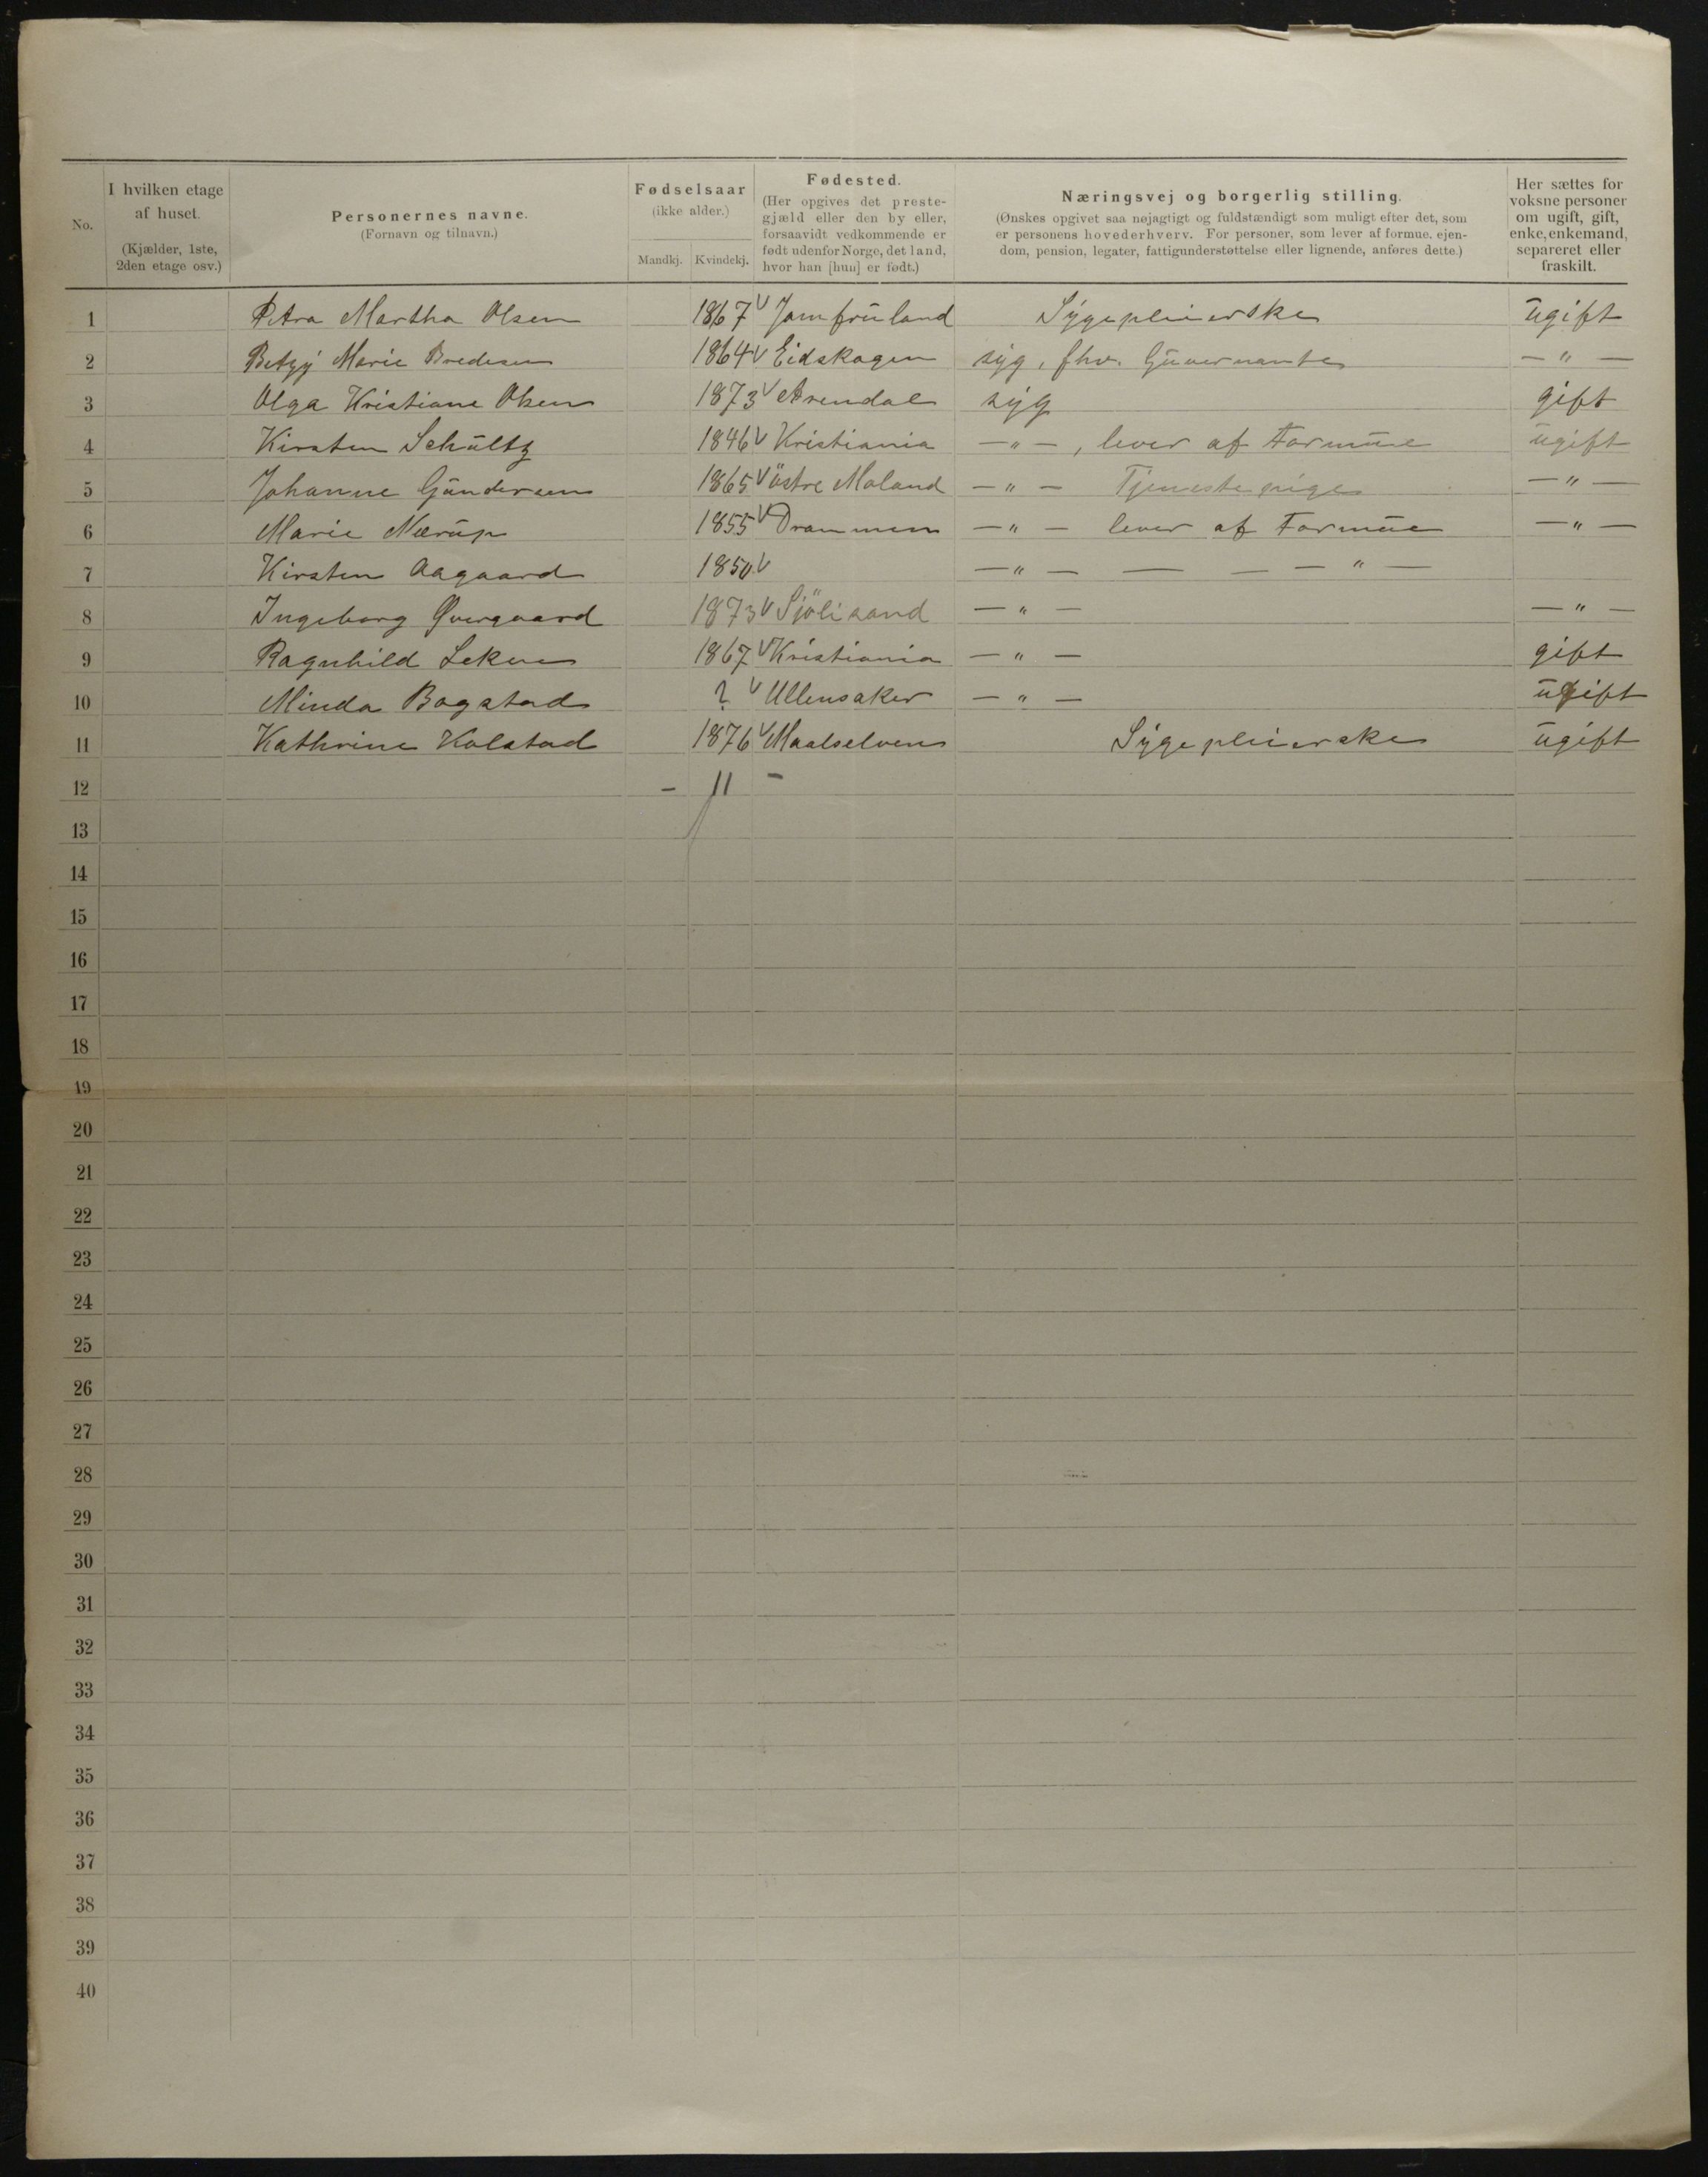 No. | I hvilken etage af huset. (Kjælder, 1ste, 2den etage osv.) | Personernes navne. (Fornavn og tilnavn.) | Fødselsaar (ikke alder.) Mandkj. Kvindekj. | Fødested. (Her opgives det prestegjæld eller den by eller, forsaavidt vedkommende er født udenfor Norge, det land, hvor han [hun] er født.) | Næringsvej og borgerlig stilling. (Ønskes opgivet saa nøjagtigt og fuldstændigt som muligt efter det, som er personens hovederhverv. For personer, som lever af formue, ejendom, pension, legater, fattigunderstøttelse eller lignende, anføres dette.) | Her sættes for voksne personer om ugift, gift, enke, enkemand, separeret eller fraskilt.
1 Petra Martha Olsen 1867 Jomfruland Sygepleierske ugift
2 Betzy Marie Bredesen 1864 Eidskogen syg, fhv. Guvernante — " —
3 Olga Kristiane Olsen 1873 Arendal syg gift
4 Kirsten Schultz 1846 Kristiania — " —, lever af Formue ugift
5 Johanne Gundersen 1865 östre Moland — " — Tjenestepige — " —
6 Marie Nærup 1855 Drammen — " — lever af Formue — " —
7 Kirsten Aagaard 1850 — " — — — — " —
8 Ingeborg Øvergaard 1873 Sjölisand — " — — " —
9 Ragnhild Leken 1867 Kristiania — " — gift
10 Minda Bogstad ? Ullensaker — " — ugift
11 Kathrine Kolstad 1876 Maalselven Sygepleierske ugift
12 - 11 -
13
14
15
16
17
18
19
20
21
22
23
24
25
26
27
28
29
30
31
32
33
34
35
36
37
38
39
40